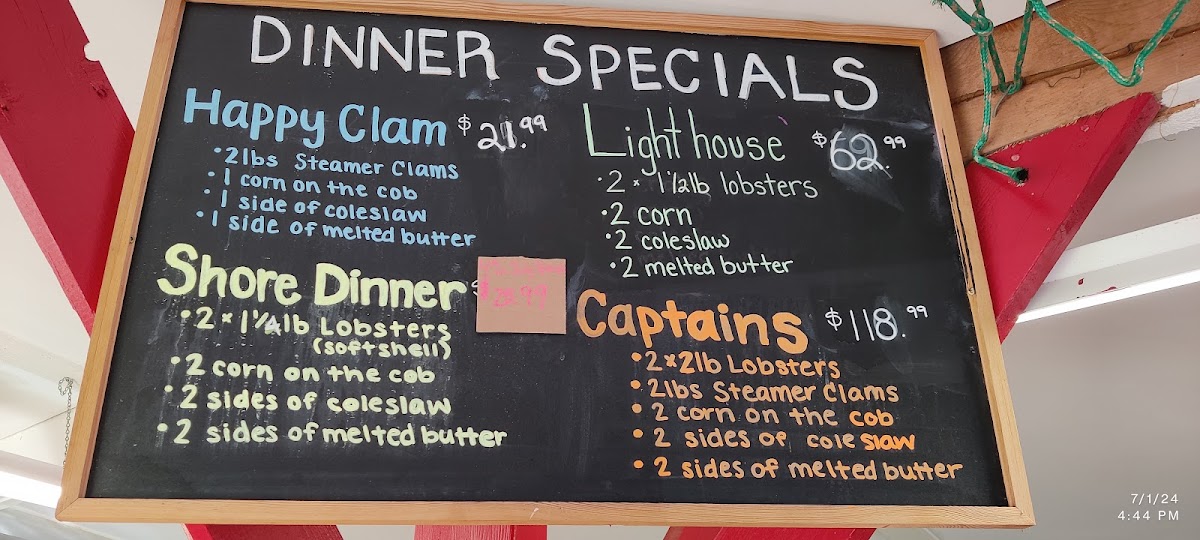 DINNER SPECIALS
Happy Clam $21.99
• 2lbs Steamer Clams
• 1 corn on the cob
• 1 side of coleslaw
• 1 side of melted butter
Shore Dinner $
• 2 × 1 1/4 lb Lobsters
(softshell)
• 2 corn on the cob
• 2 sides of coleslaw
• 2 sides of melted butter
Light house $62.99
• 2 × 1 1/2lb lobsters
• 2 corn
• 2 coleslaw
• 2 melted butter
Captains $118.99
• 2×2lb Lobsters
• 2lbs Steamer Clams
• 2 corn on the cob
• 2 sides of cole slaw
• 2 sides of melted butter
7/1/24
4:44 PM